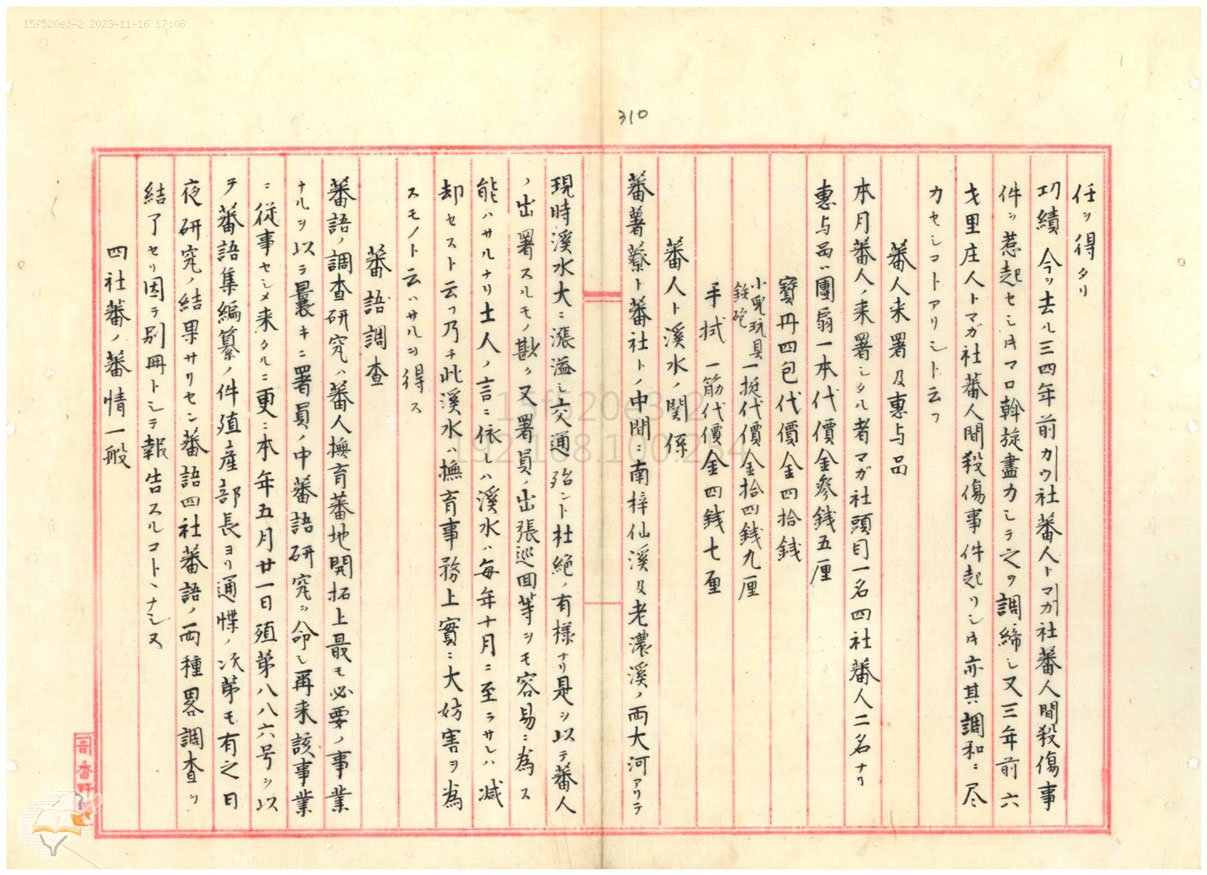 15f520e3-2 2023-11-16 17:08
310
任ヲ得タリ
功績 今ヲ去ル三四年前カウ社蕃人トマガ社蕃人間殺傷事
件ヲ惹起セシトキマロ斡旋盡力シテ之ヲ調締シ又三年前六
戈里庄人トマガ社蕃人間殺傷事件起リシトキ亦其調和ニ尽
カセシコトアリシト云フ
蕃人来署及惠与品
本月蕃人ノ来署シタル者マガ社頭目一名四社蕃人二名ナリ
惠与品ハ團扇一本代價金参銭五厘
寳丹四包代價金四拾銭
小児玩具鉄砲一挺代價金拾四銭九厘
手拭一筋代價金四銭七厘
蕃人ト溪水ノ関係
蕃薯藔ト蕃社トノ中間ニ南梓仙溪及老濃溪ノ両大河アリテ
現時溪水大ニ漲溢シ交通殆ント杜絶ノ有様ナリ是ヲ以テ蕃人
ノ出署スルモノ尠ク又署員ノ出張巡回等ヲモ容易ニ為ス
能ハサルナリ土人ノ言ニ依レハ溪水ハ毎年十月ニ至ラサレハ减
却セスト云フ乃チ此溪水ハ撫育事務上實ニ大妨害ヲ為
スモノト云ハサルヲ得ス
蕃語調査
蕃語ノ調査研究ハ蕃人撫育蕃地開拓上最モ必要ノ事業
ナルヲ以テ曩キニ署員ノ中蕃語研究ヲ命シ再来該事業
ニ従事セシメ来タルニ更ニ本年五月廿一日殖第八八六号ヲ以
テ蕃語集編纂ノ件殖産部長ヨリ通牒ノ次第モ有之日
夜研究ノ結果サリセン蕃語四社蕃語ノ両種畧調査ヲ
結了セリ因テ別冊トシテ報告スルコトヽナシヌ
四社蕃ノ蕃情一般
15f520e3-2
192.168.100.254